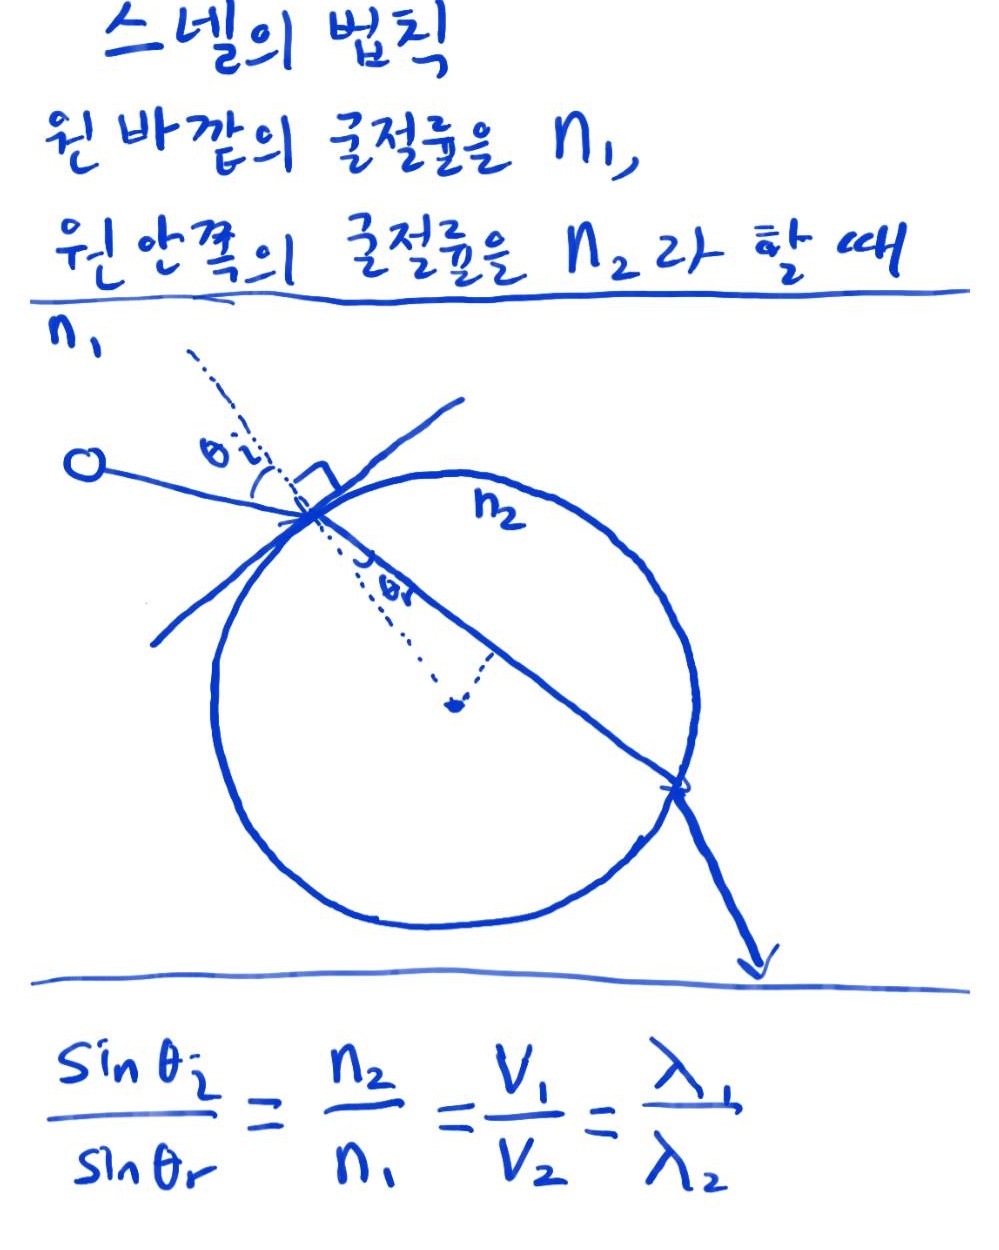 스넬의 법칙
원 바깥의 굴절률을 n₁,
원 안쪽의 굴절률을 n₂라 할 때
n₁
θi
n₂
θr
sinθi / sinθr = n₂ / n₁ = V₁ / V₂ = λ₁ / λ₂